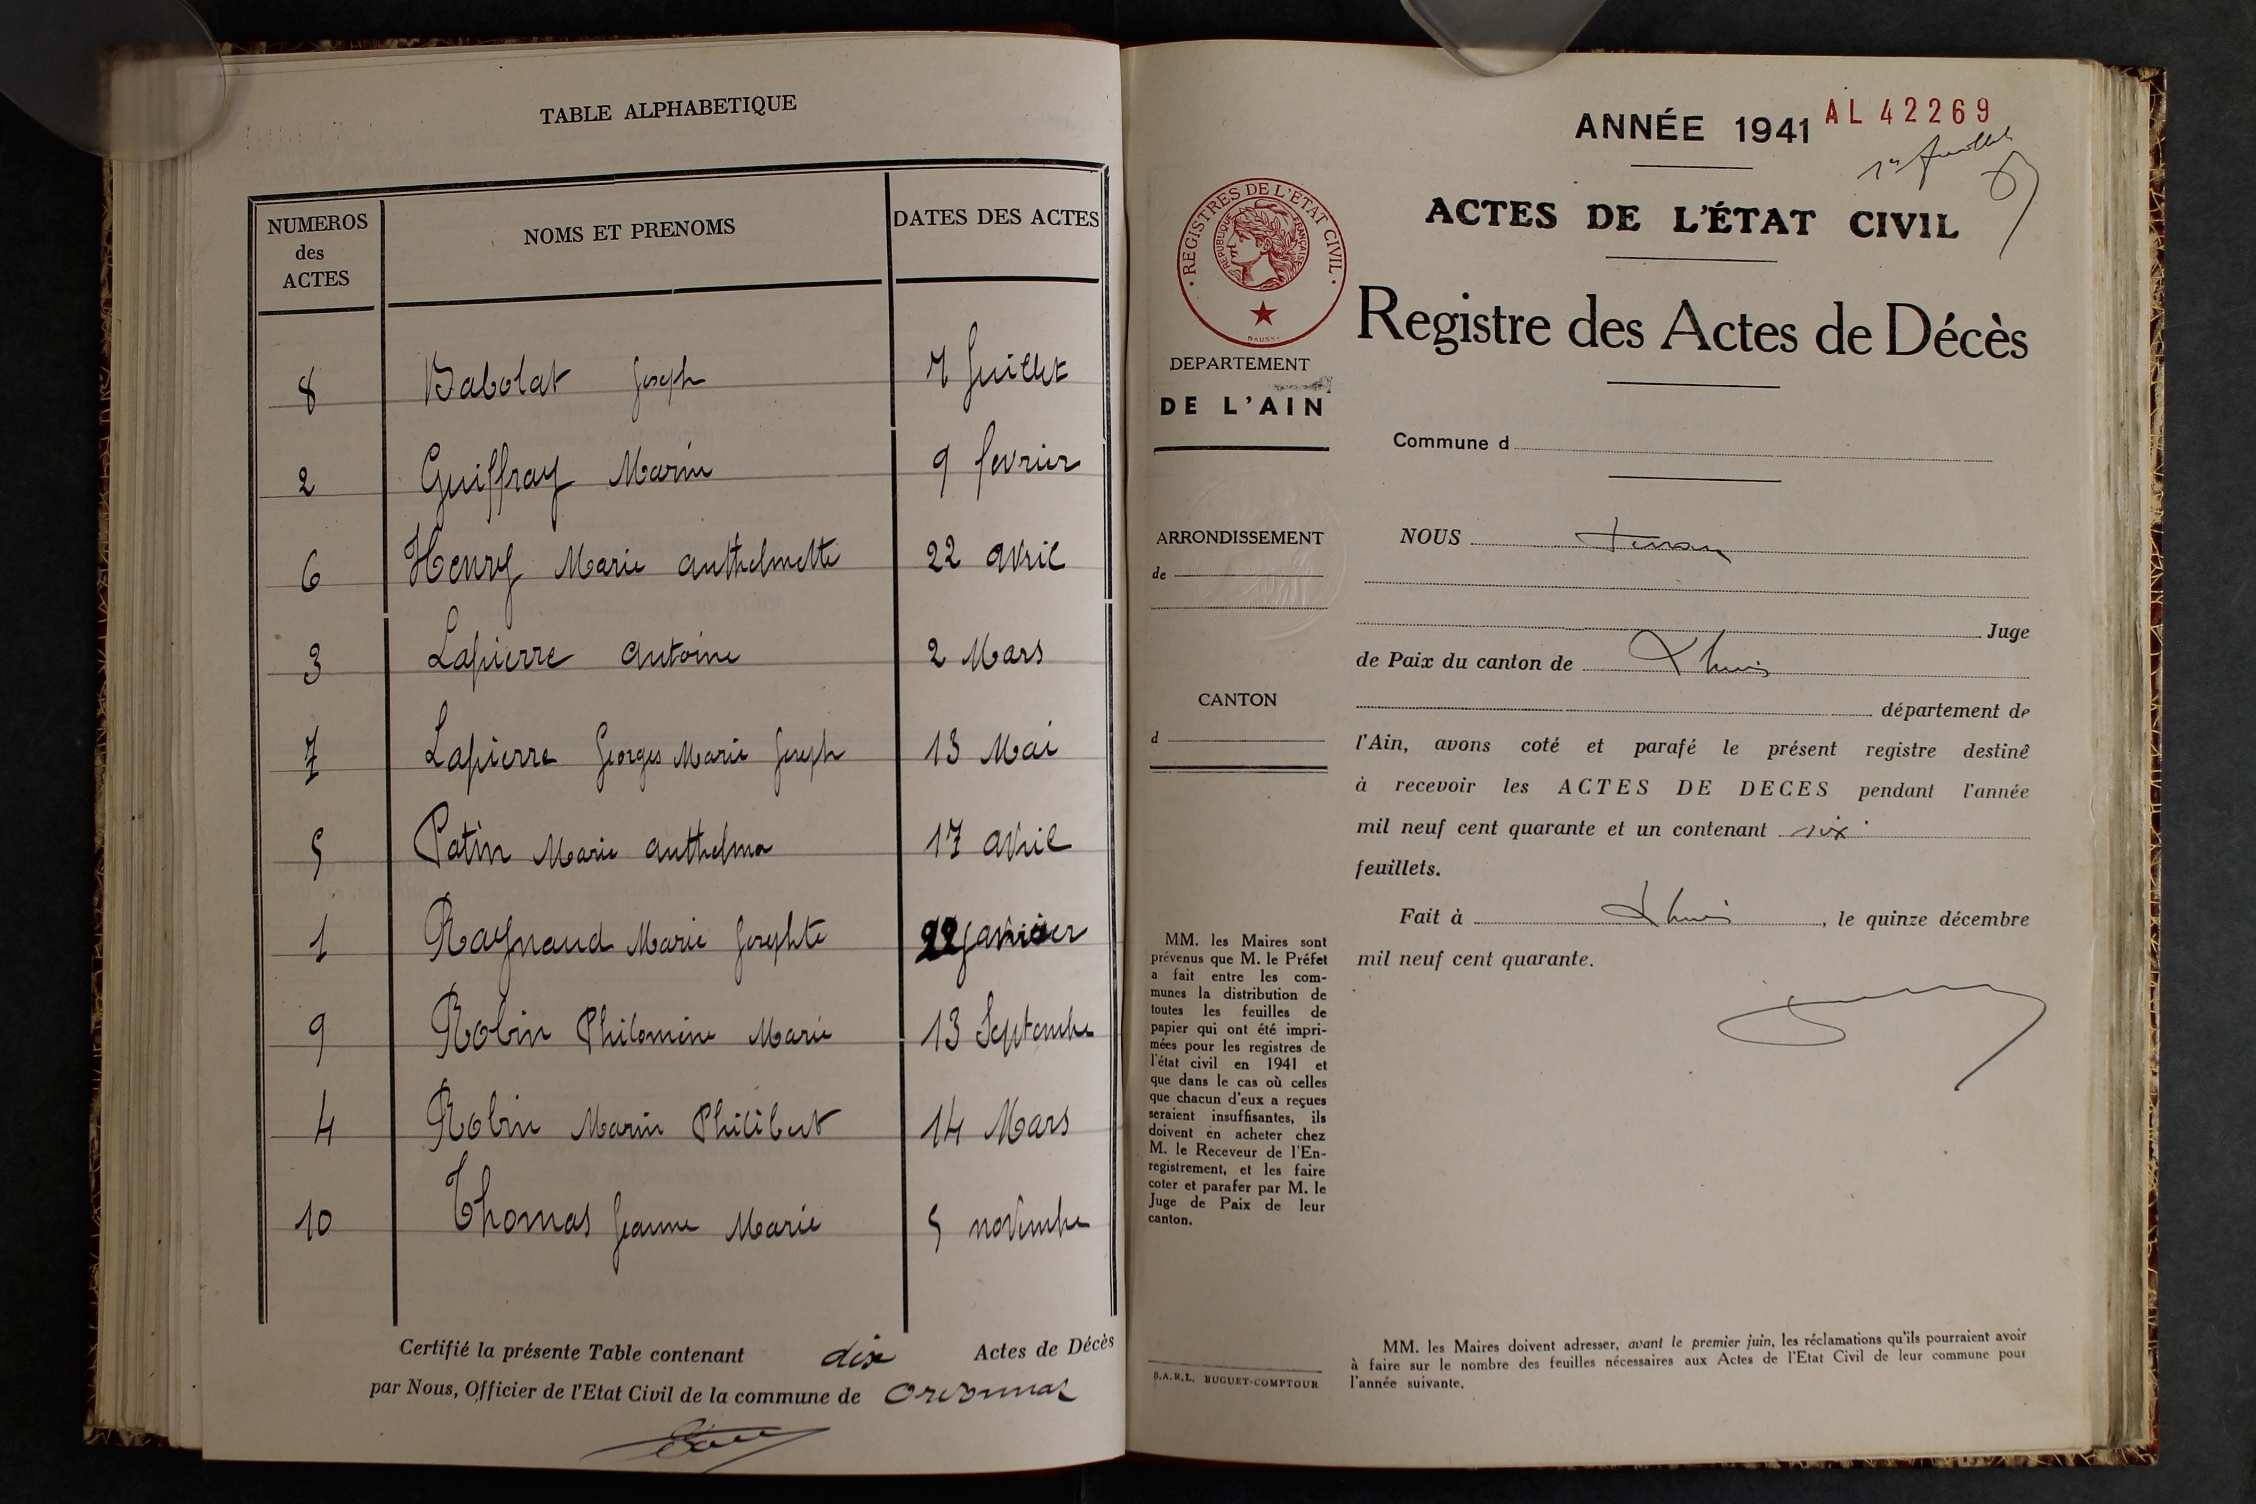 TABLE ALPHABETIQUE
NUMEROS
des
ACTES
NOMS ET PRENOMS
DATES DES ACTES
8 Babolat Joseph 7 Juillet
2 Guiffray Marin 9 fevrier
6 Henry Marie anthelmette 22 avril
3 Lapierre antoine 2 Mars
7 Lapierre Georges Marie Joseph 13 Mai
5 Patin Marie anthelma 17 avril
1 Raynaud Marie Josephte 22 janvier
9 Robin Philomène Marie 13 Septembre
4 Robin Marin Philibert 14 Mars
10 Thomas Jeanne Marie 5 novembre
Certifié la présente Table contenant dix Actes de Décès
par Nous, Officier de l'Etat Civil de la commune de Ordonnaz
ANNÉE 1941
AL 42269
1er feuillet
ACTES DE L'ÉTAT CIVIL
Registre des Actes de Décès
REGISTRES DE L'ÉTAT CIVIL
REPUBLIQUE FRANÇAISE
DEPARTEMENT
DE L'AIN
Commune d
ARRONDISSEMENT
de
NOUS
Juge
de Paix du canton de Lhuis
CANTON
d
département de
l'Ain, avons coté et parafé le présent registre destiné
à recevoir les ACTES DE DECES pendant l'année
mil neuf cent quarante et un contenant six
feuillets.
Fait à Lhuis, le quinze décembre
mil neuf cent quarante.
MM. les Maires sont
prévenus que M. le Préfet
a fait entre les com-
munes la distribution de
toutes les feuilles de
papier qui ont été impri-
mées pour les registres de
l'état civil en 1941 et
que dans le cas où celles
que chacun d'eux a reçues
seraient insuffisantes, ils
doivent en acheter chez
M. le Receveur de l'En-
registrement, et les faire
coter et parafer par M. le
Juge de Paix de leur
canton.
S.A.R.L. BUGUET-COMPTOUR
MM. les Maires doivent adresser, avant le premier juin, les réclamations qu'ils pourraient avoir
à faire sur le nombre des feuilles nécessaires aux Actes de l'Etat Civil de leur commune pour
l'année suivante.